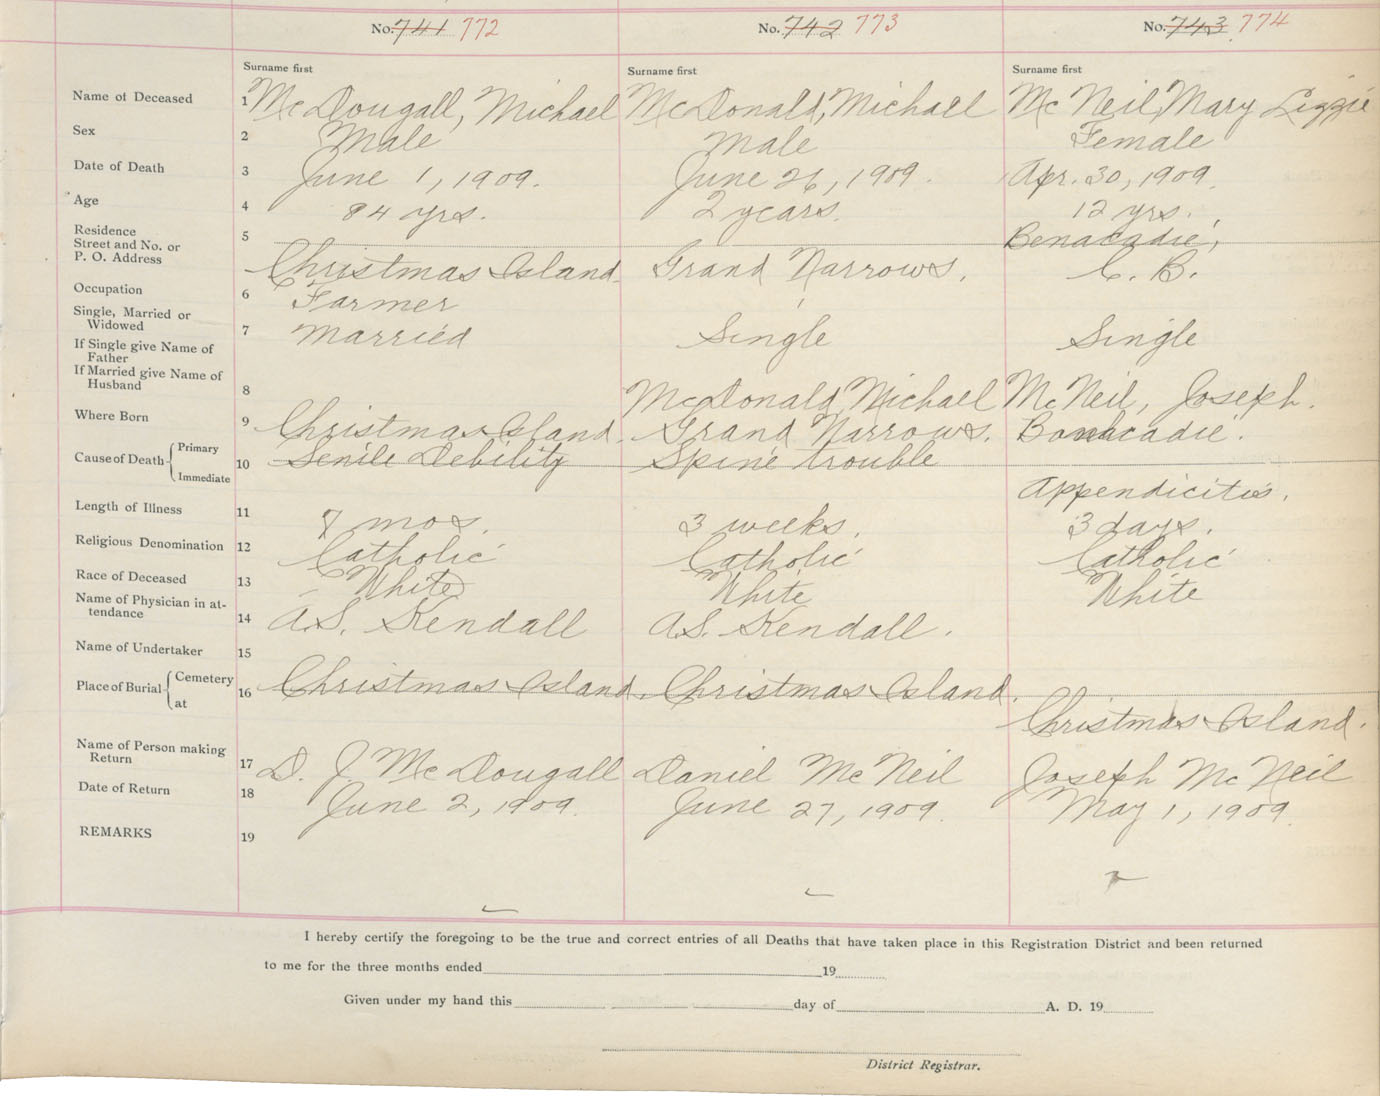 No. 741 772 No. 742 773 No. 743 774
Surname first Surname first Surname first
Name of Deceased 1 McDougall, Michael McDonald, Michael McNeil, Mary Lizzie
Sex 2 Male Male Female
Date of Death 3 June 1, 1909. June 26, 1909. Apr. 30, 1909.
Age 4 84 yrs. 2 years. 12 yrs.
Residence
Street and No. or 5 Benacadie,
P. O. Address Christmas Island. Grand Narrows. C. B.
Occupation 6 Farmer
Single, Married or
Widowed 7 Married Single Single
If Single give Name of
Father
If Married give Name of
Husband 8 McDonald, Michael McNeil, Joseph.
Where Born 9 Christmas Island. Grand Narrows. Benacadie.
Cause of Death Primary 10 Senile Debility Spine trouble
Immediate Appendicitis.
Length of Illness 11 7 mos. 3 weeks. 3 days.
Religious Denomination 12 Catholic Catholic Catholic
Race of Deceased 13 White White White
Name of Physician in at-
tendance 14 A.S. Kendall A.S. Kendall.
Name of Undertaker 15
Place of Burial Cemetery 16 Christmas Island. Christmas Island.
at Christmas Island.
Name of Person making
Return 17 D. J. McDougall Daniel McNeil Joseph McNeil
Date of Return 18 June 2, 1909. June 27, 1909. May 1, 1909.
REMARKS 19
I hereby certify the foregoing to be the true and correct entries of all Deaths that have taken place in this Registration District and been returned
to me for the three months ended 19
Given under my hand this day of A. D. 19
District Registrar.